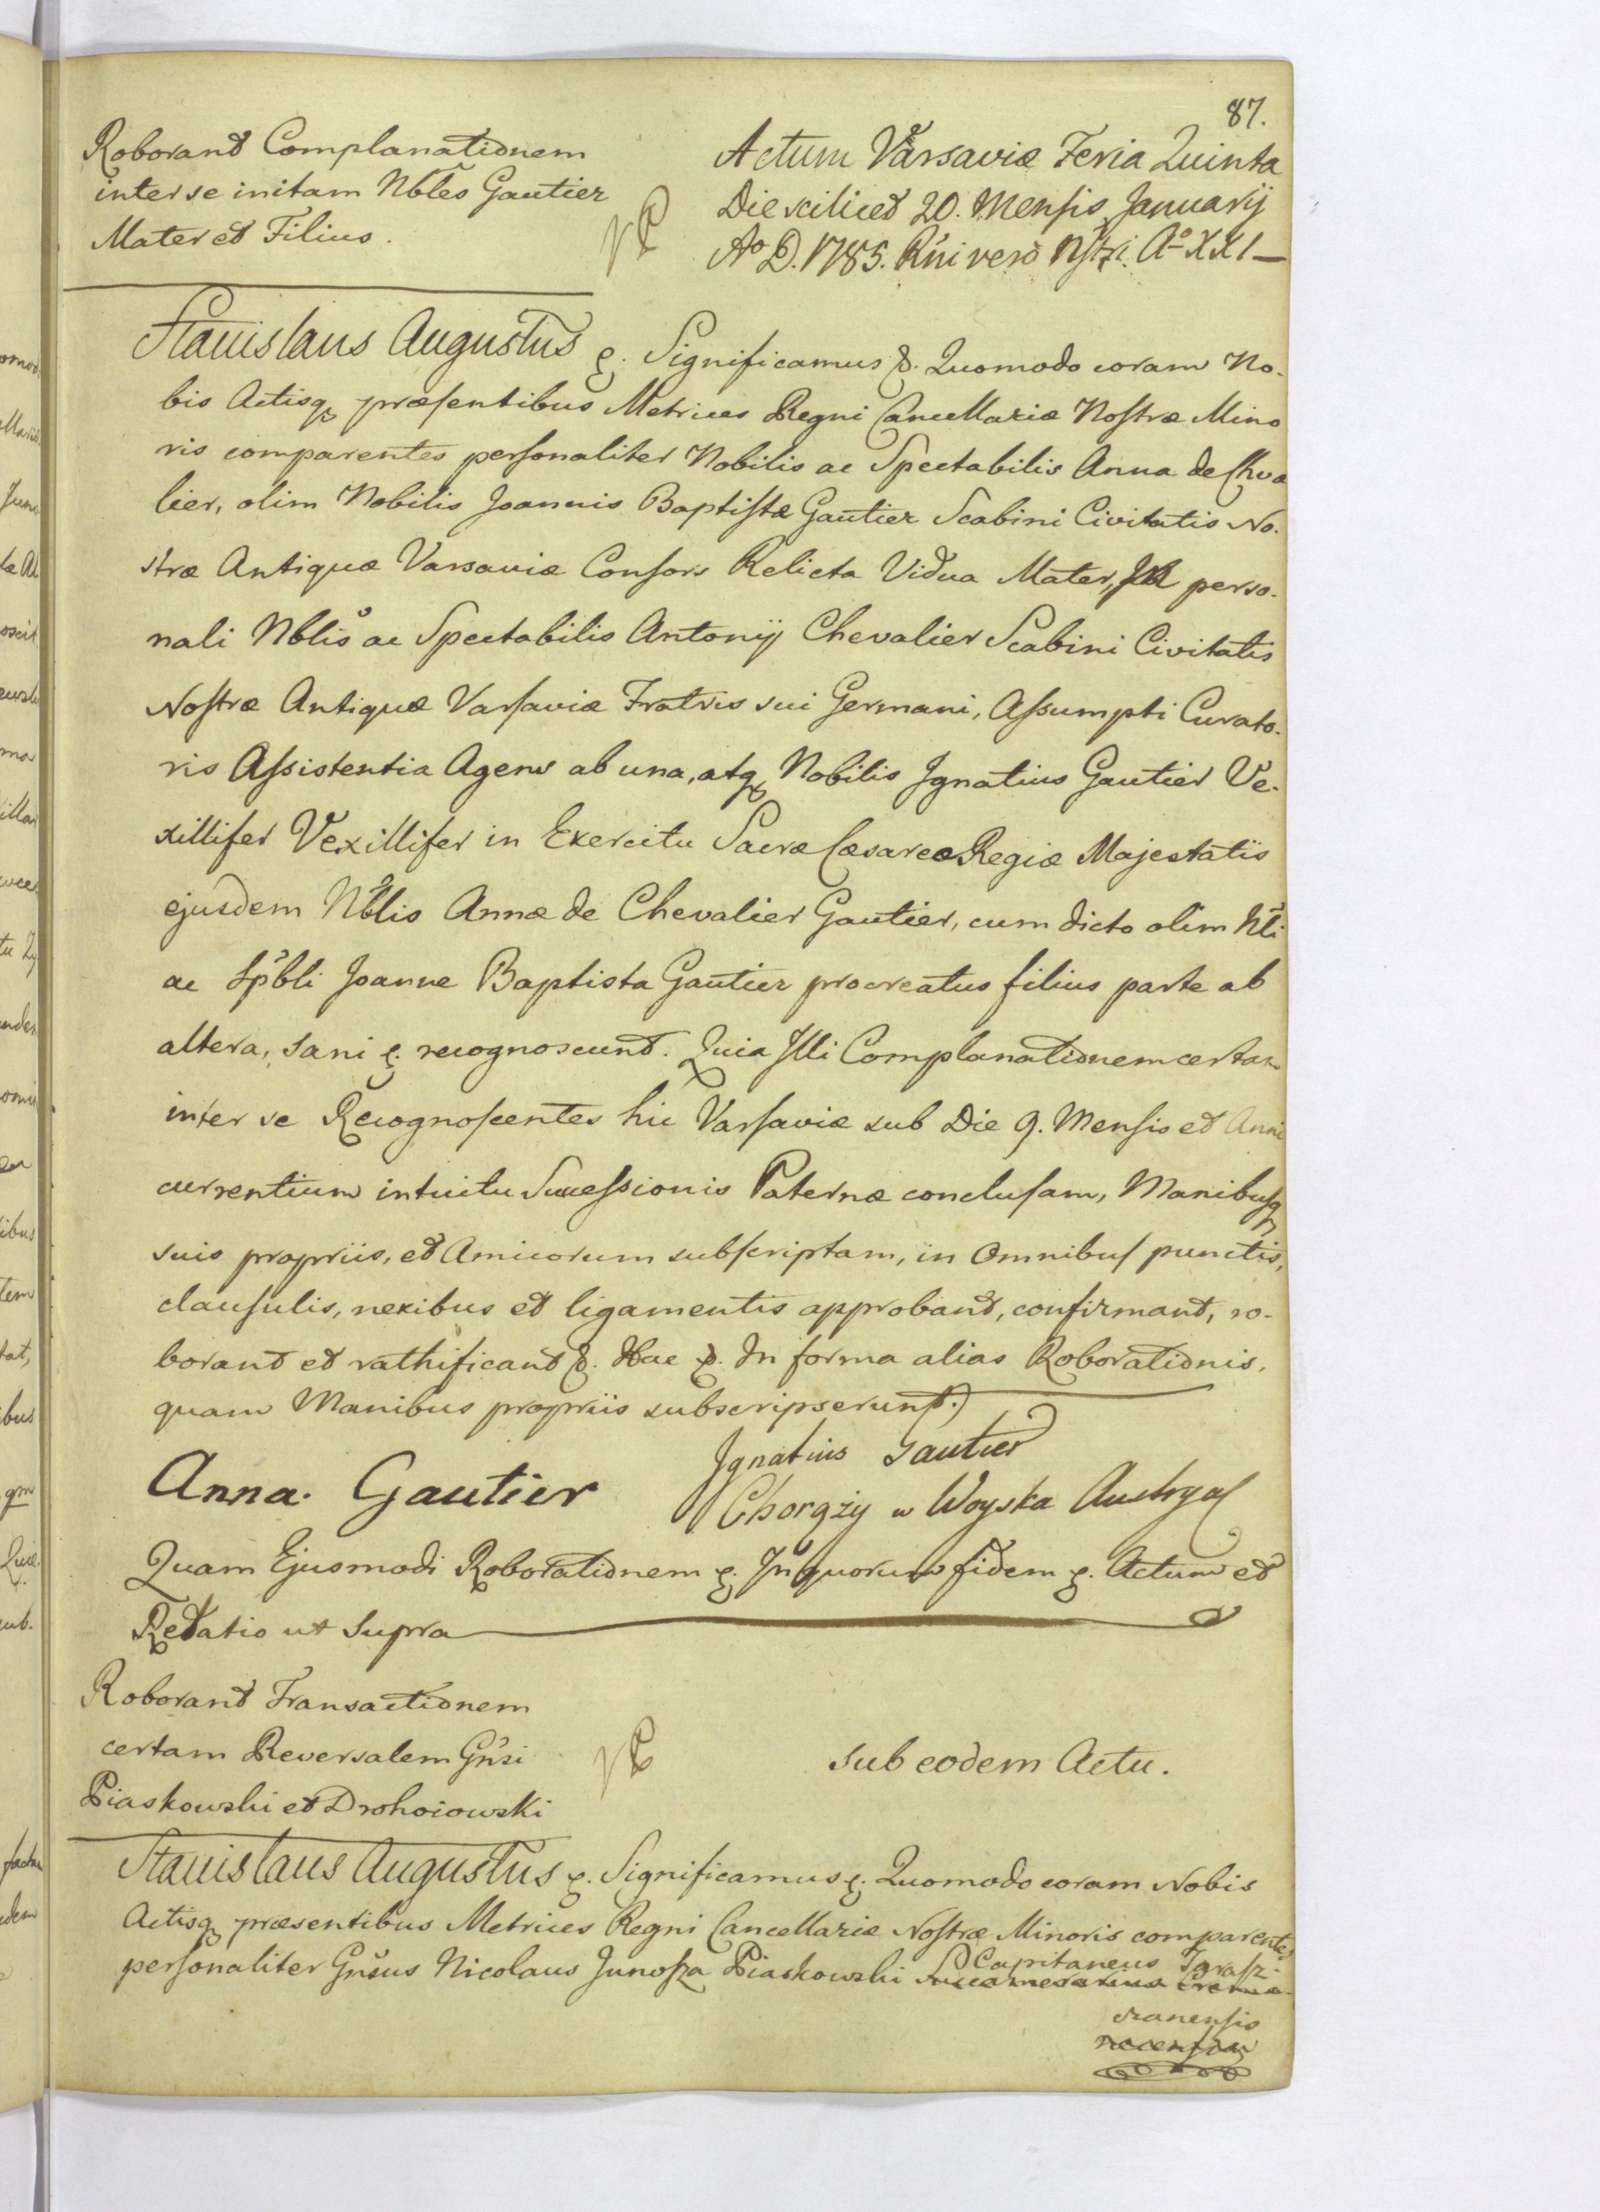 87.
Roborant Complanationem
inter se initam Nbles Gautier
Mater et Filius.
Actum Varsaviæ Feria Quinta
Die scilicet 20. Mensis Januarij
Ao D. 1785. Rni vero Nstri Ao XXI
Stanislaus Augustus &. Significamus &. Quomodo coram No-
bis Actisq præsentibus Metrices Regni Cancellariæ Nostræ Mino
ris comparentes personaliter Nobilis ac Spectabilis Anna de Chva
lier, olim Nobilis Joannis Baptistæ Gautier Scabini Civitatis No-
stræ Antiquæ Varsaviæ Consors Relicta Vidua Mater, perso-
nali Nblis ac Spectabilis Antonij Chevalier Scabini Civitatis
Nostræ Antiquæ Varsaviæ Fratris sui Germani, Assumpti Curato-
ris Assistentia Agens ab una, atq Nobilis Ignatius Gautier Ve-
xillifer Vexillifer in Exercitu Sacræ Cæsareæ Regiæ Majestatis
ejusdem Nblis Annæ de Chevalier Gautier, cum dicto olim Nli
ac Spbli Joanne Baptista Gautier procreatus filius parte ab
altera, sani &. recognoscunt. Quia Illi Complanationem certam
inter se Recognoscentes hic Varsaviæ sub Die 9. Mensis et Anni
currentium intuitu Successionis Paternæ conclusam, Manibusq
suis propriis, et Amicorum subscriptam, in Omnibus punctis,
clausulis, nexibus et ligamentis approbant, confirmant, ro-
borant et rathificant &. Hac &. In forma alias Roborationis,
quam Manibus propriis subscripserunt.)
Anna. Gautier
Ignatius Gautier
Chorąży w Woyska Austryac
Quam Ejusmodi Roborationem &. In quorum fidem &. Actum et
Relatio ut supra
Roborant Transactionem
certam Reversalem Gnsi
Piaskowski et Drohoiowski
Sub eodem Actu.
Stanislaus Augustus &. Significamus &. Quomodo coram Nobis
Actisq præsentibus Metrices Regni Cancellariæ Nostræ Minoris comparentes
personaliter Gnsus Nicolaus Junosza Piaskowski Succamerarius Creme- Capitaneus Taraszc-
zanensis
necensis